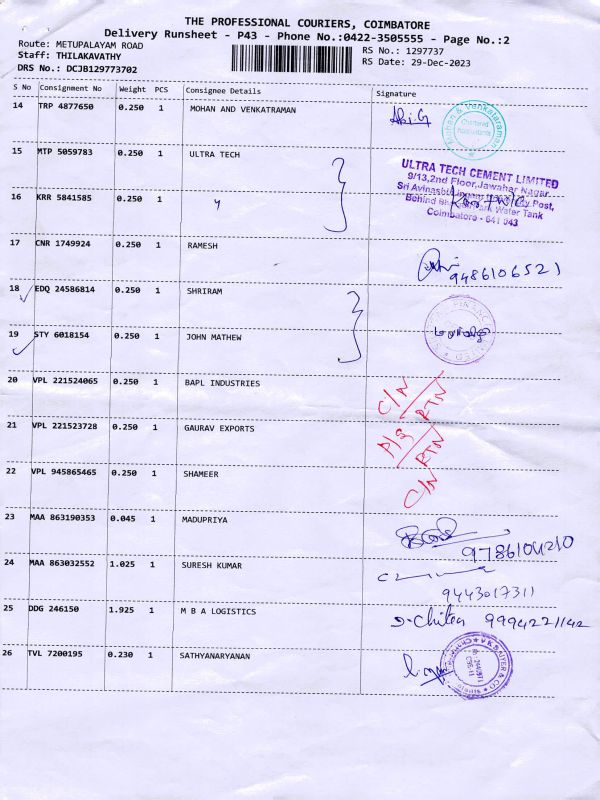 THE PROFESSIONAL COURIERS, COIMBATORE
Delivery Runsheet - P43 - Phone No.:0422-3505555 - Page No.:2
Route: METUPALAYAM ROAD
Staff: THILAKAVATHY
DRS No.: DCJB129773702
RS No.: 1297737
RS Date: 29-Dec-2023
S No Consignment No Weight PCS Consignee Details Signature
14 TRP 4877650 0.250 1 MOHAN AND VENKATRAMAN
Chartered Accountants
15 MTP 5059783 0.250 1 ULTRA TECH
ULTRA TECH CEMENT LIMITED
9/13,2nd Floor,Jawahar Nagar
Coimbatore - 641 043
16 KRR 5841585 0.250 1 "
17 CNR 1749924 0.250 1 RAMESH
9486106521
18 EDQ 24586814 0.250 1 SHRIRAM
19 STY 6018154 0.250 1 JOHN MATHEW
20 VPL 221524065 0.250 1 BAPL INDUSTRIES C/N RTN
21 VPL 221523728 0.250 1 GAURAV EXPORTS RTN
22 VPL 945865465 0.250 1 SHAMEER C/N
23 MAA 863190353 0.045 1 MADUPRIYA
24 MAA 863032552 1.025 1 SURESH KUMAR
9443017311
25 DDG 246150 1.925 1 M B A LOGISTICS
9994221142
26 TVL 7200195 0.230 1 SATHYANARYANAN